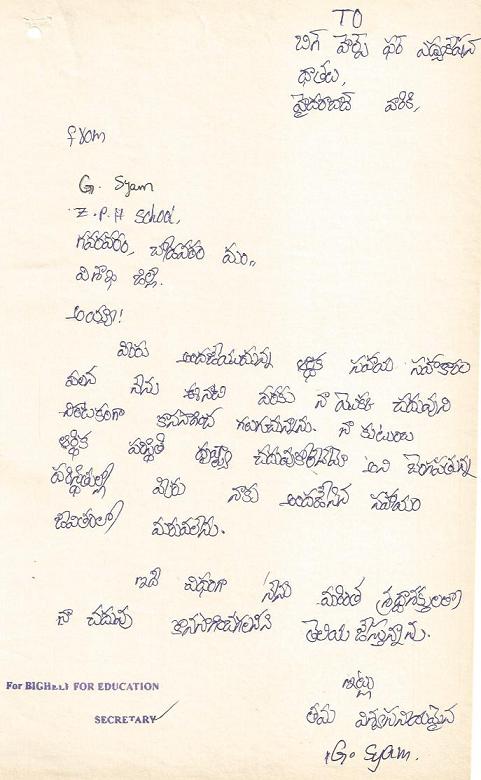 TO
బిగ్ హెల్ప్ ఫర్ ఎడ్యుకేషన్
దాతలు,
హైదరాబాద్ వారికి,
from
G. Syam
Z.P.H School,
గవరవరం, చోడవరం మం,,
విశాఖ జిల్లా.
అయ్యా!
మీరు అందజేయుచున్న ఆర్థిక సహాయ సహకారం
వలన నేను ఈనాటి వరకు నా యొక్క చదువుని
నిరాటకంగా కొనసాగించ గలుగుచున్నాను. నా కుటుంబ
ఆర్థిక పరిస్థితి దృష్ట్యా చదువుకోగలనో అని బెంగపడుతున్న
పరిస్థితుల్లో మీరు నాకు అందజేసిన సహాయం
జీవితంలో మరువలేను.
ఇదే విధంగా నేను మరింత శ్రద్ధాసక్తులతో
నా చదువు కొనసాగించగలనని తెలియ జేస్తున్నాను.
ఇట్లు
తమ విశ్వసనీయమైన
G. Syam.
For BIGHELP FOR EDUCATION
SECRETARY